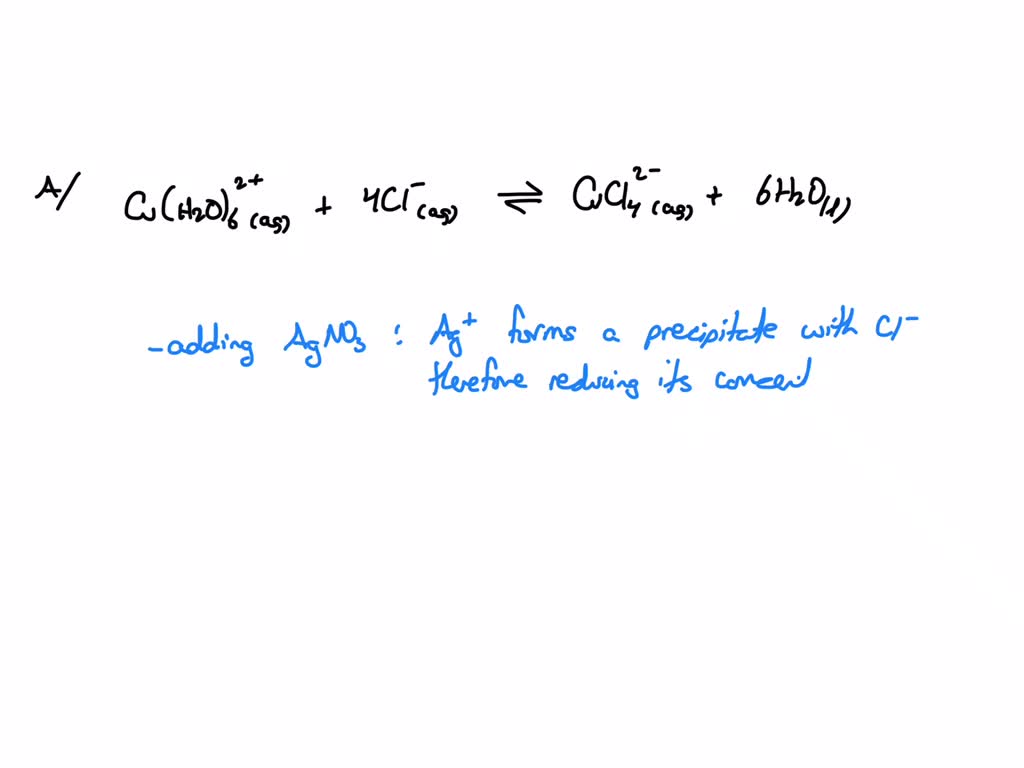 A/ Cu(H2O)6 2+ (aq) + 4Cl- (aq) ⇌ CuCl4 2- (aq) + 6H2O(l)
-adding AgNO3 : Ag+ forms a precipitate with Cl-
therefore reducing its